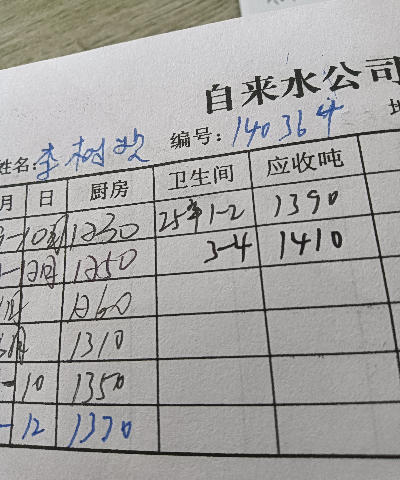 自来水公司
姓名:李树 编号:140364
月 日 厨房 卫生间 应收吨
-10月 1230 25年1-2 1390
-12月 1250 3-4 1410
月 1260
月 1310
-10 1350
-12 1370